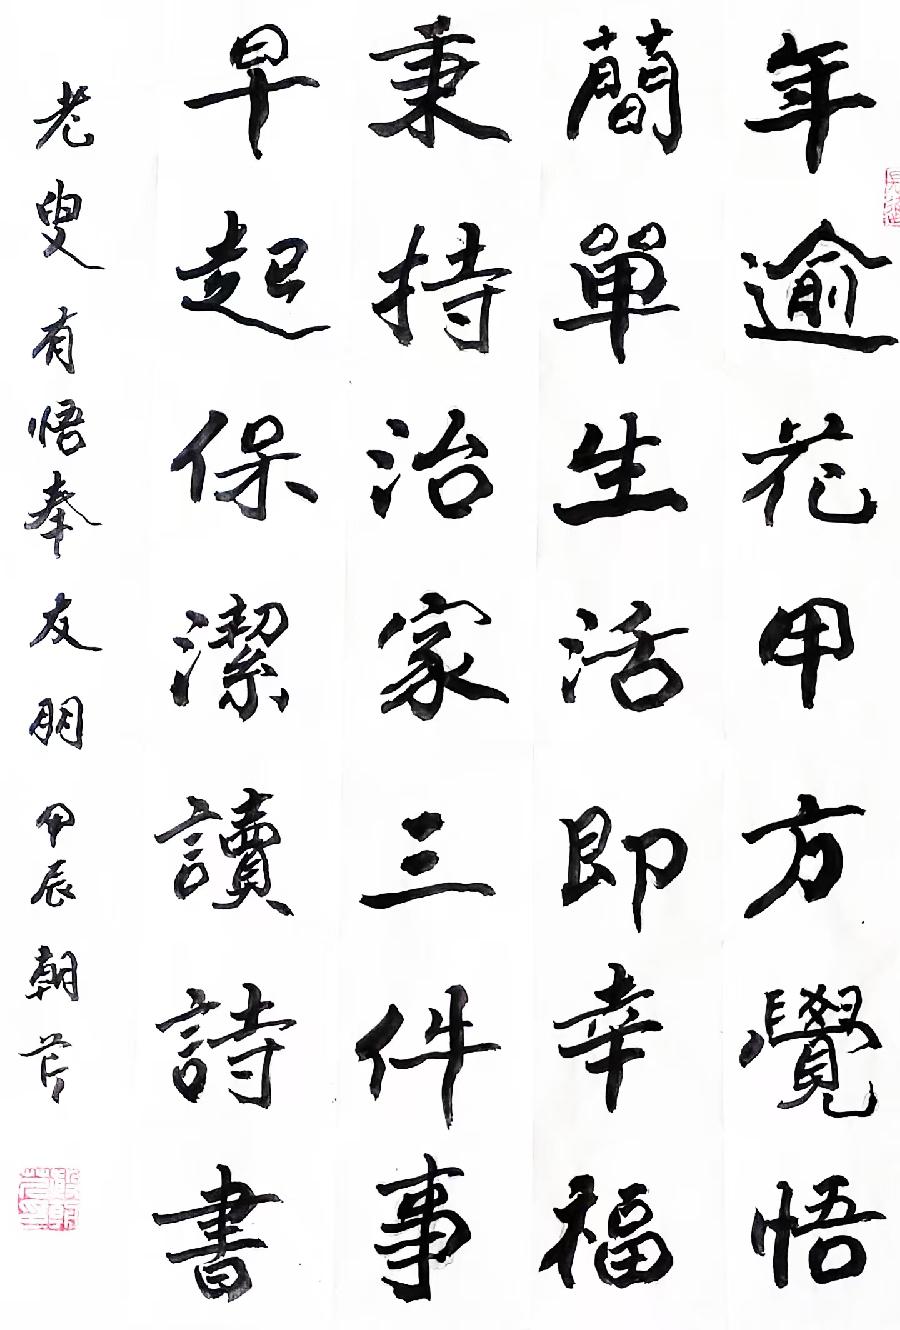 年逾花甲方覺悟
簡單生活即幸福
秉持治家三件事
早起保潔讀詩書
老叟有悟奉友朋 甲辰 朝芹